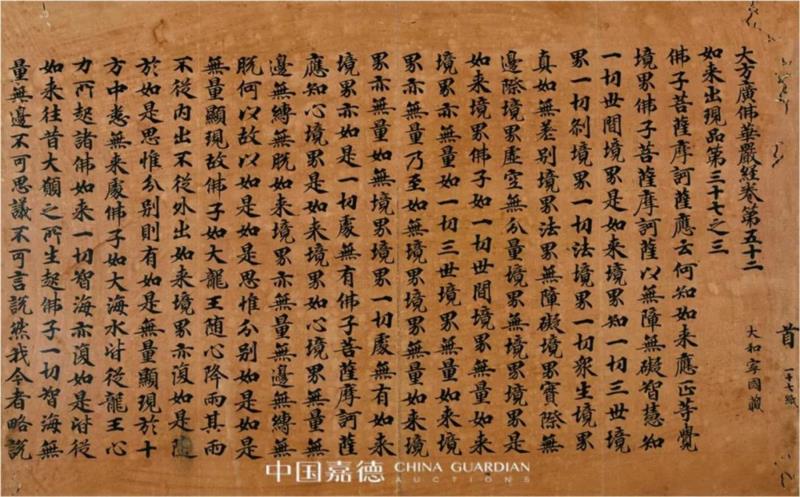 首
一十七紙
大和寧國藏
大方廣佛華嚴経卷第五十二
如来出現品第三十七之三
佛子菩薩摩訶薩應云何知如来應正等覺
境界佛子菩薩摩訶薩以無障無礙智慧知
一切世間境界是如来境界知一切三世境
界一切刹境界一切法境界一切衆生境界
真如無差别境界法界無障礙境界實際無
邊際境界虛空無分量境界無境界境界是
如来境界佛子如一切世間境界無量如来
境界亦無量如一切三世境界無量如来境
界亦無量乃至如無境界境界無量如来境
界亦無量如無境界境界一切處無有如来
境界亦如是一切處無有佛子菩薩摩訶薩
應知心境界是如来境界如心境界無量無
邊無縛無脱如来境界亦無量無邊無縛無
脱何以故以如是如是思惟分别如是如是
無量顯現故佛子如大龍王随心降雨其雨
不從内出不從外出如来境界亦復如是随
於如是思惟分别則有如是無量顯現於十
方中悉無来處佛子如大海水皆從龍王心
力所起諸佛如来一切智海亦復如是皆從
如来往昔大願之所生起佛子一切智海無
量無邊不可思議不可言說然我今者略說
中国嘉德 CHINA GUARDIAN
AUCTIONS